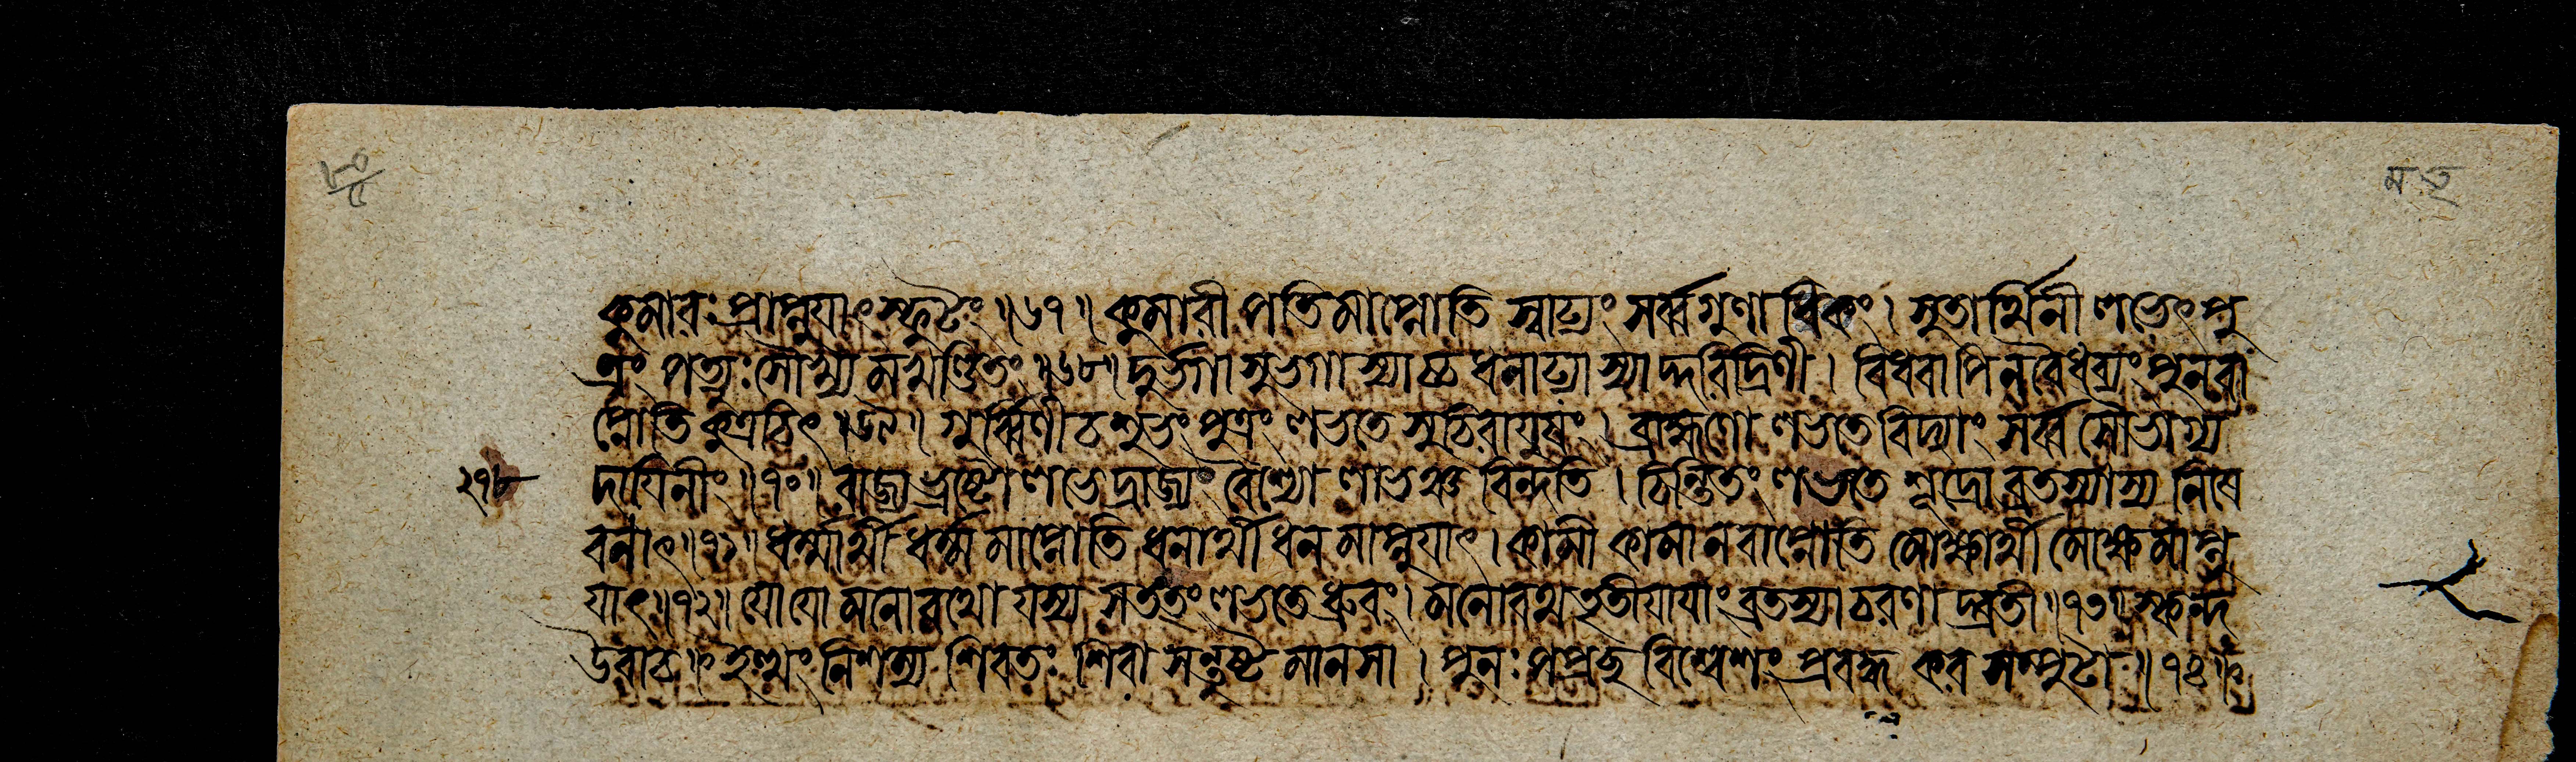 ৮০/৫ ম ত্
কুমাৰঃ প্রাপ্নুযাৎ স্ফুটং ॥৬৭॥ কুমাৰী পতিমাপ্নোতি স্বাঢ্যং সর্ব্বগুণাধিকং । সুতার্থিনী লভেৎ পু
ত্রং পত্যুঃ সৌখ্যমখণ্ডিতং ॥৬৮॥ দুর্ভগা সুভগা স্যাচ্চ ধনাঢ্যা স্যাদ্দৰিদ্রিণী । বিধবাপি ন বৈধব্যং পুনৰবা
প্নোতি কুত্রচিৎ ॥৬৯॥ গুর্ব্বিণী চ শুভং পুত্রং লভতে সুচিৰাযুষং । ব্রাহ্মণো লভতে বিদ্যাং সর্ব্বসৌভাগ্য
২৭৮ দাযিনীং ॥৭০॥ ৰাজ্যভ্রষ্টো লভেদ্রাজ্যং বৈশ্যো লাভঞ্চ বিন্দতি । চিন্তিতং লভতে শূদ্রো ব্রতস্যাস্য নিষে
বনাৎ ॥৭১॥ ধর্ম্মার্থী ধর্ম্মমাপ্নোতি ধনার্থী ধনমাপ্নুযাৎ । কামী কামানবাপ্নোতি মোক্ষার্থী মোক্ষমাপ্নু
যাৎ ॥৭২॥ যো যো মনোৰথো যস্য স তত্তং লভতে ধ্রুবং । মনোৰথতৃতীযাযাং ব্রতস্যাচৰণাদ্ব্রতী ॥৭৩॥ স্কন্দ
উবাচ ॥ ইত্থং নিশম্য শিবতঃ শিবা সন্তুষ্টমানসা । পুনঃ পপ্রচ্ছ বিশ্বেশং প্রবদ্ধ কৰসম্পুটা ॥৭৪॥